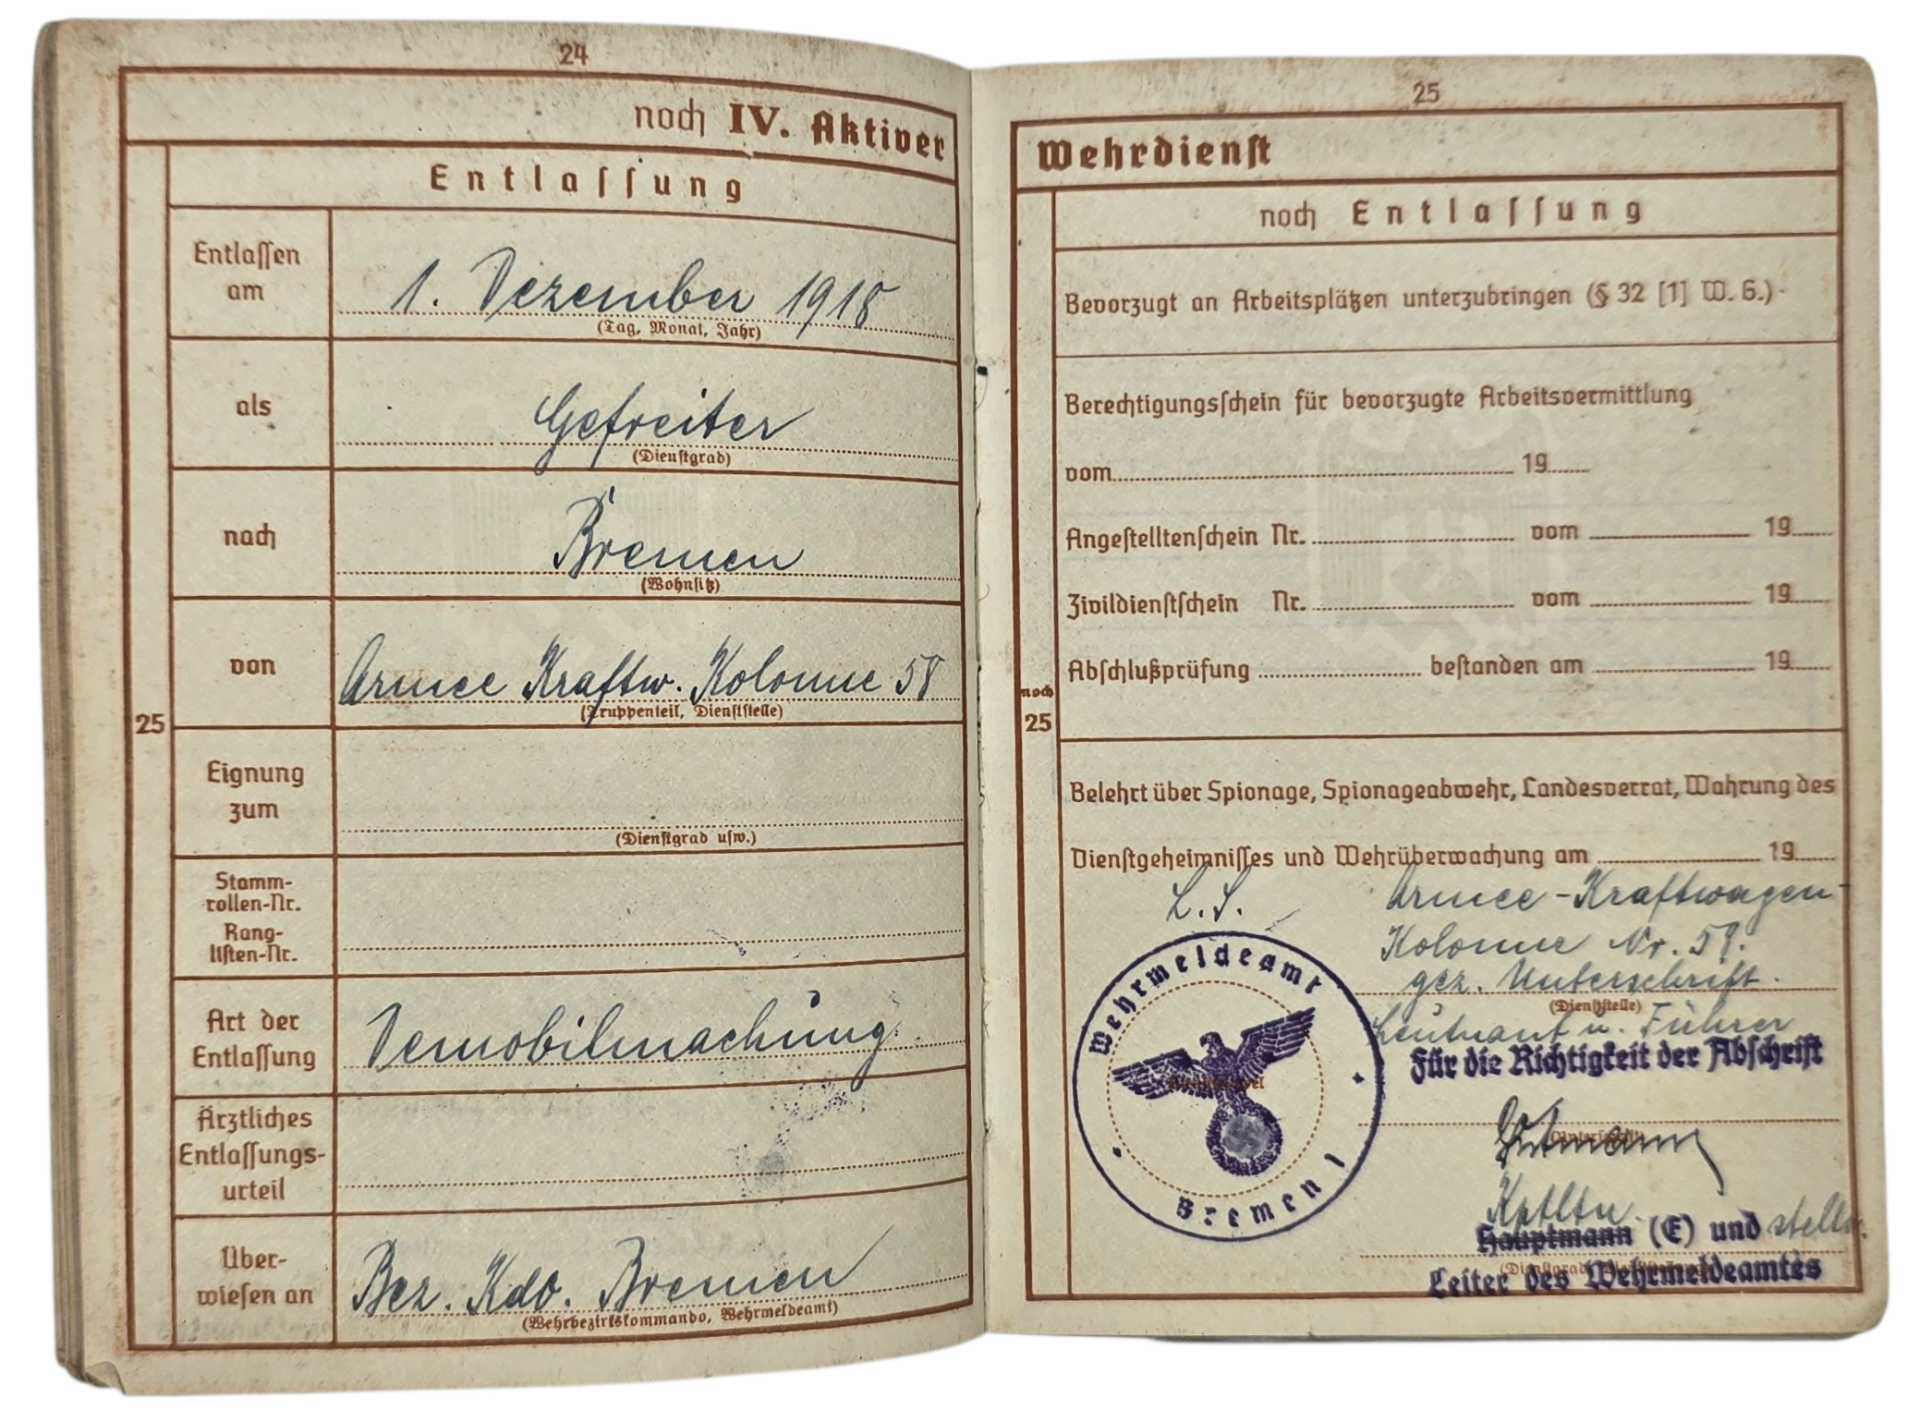 24
noch IV. Aktiver
Entlassung
Entlassen am
1. Dezember 1918
(Tag, Monat, Jahr)
als
Gefreiter
(Dienstgrad)
nach
Bremen
(Wohnsitz)
von
Armee Kraftw. Kolonne 58
(Truppenteil, Dienststelle)
25
Eignung zum
(Dienstgrad usw.)
Stamm-
rollen-Nr.
Rang-
listen-Nr.
Art der
Entlassung
Demobilmachung.
Ärztliches
Entlassungs-
urteil
Über-
wiesen an
Bez. Kdo. Bremen
(Wehrbezirkskommando, Wehrmeldeamt)
25
Wehrdienst
noch Entlassung
Bevorzugt an Arbeitsplätzen unterzubringen (§ 32 [1] W. G.)
Berechtigungsschein für bevorzugte Arbeitsvermittlung
vom 19
Angestelltenschein Nr. vom 19
Zivildienstschein Nr. vom 19
Abschlußprüfung bestanden am 19
noch
25
Belehrt über Spionage, Spionageabwehr, Landesverrat, Wahrung des
Dienstgeheimnisses und Wehrüberwachung am 19
L. S.
Armee-Kraftwagen-
Kolonne Nr. 58.
gez. Unterschrift.
(Dienststelle)
Leutnant u. Führer
Für die Richtigkeit der Abschrift
Wehrmeldeamt
Bremen 1
Kptltn.
Hauptmann (E) und stellv.
Leiter des Wehrmeldeamtes